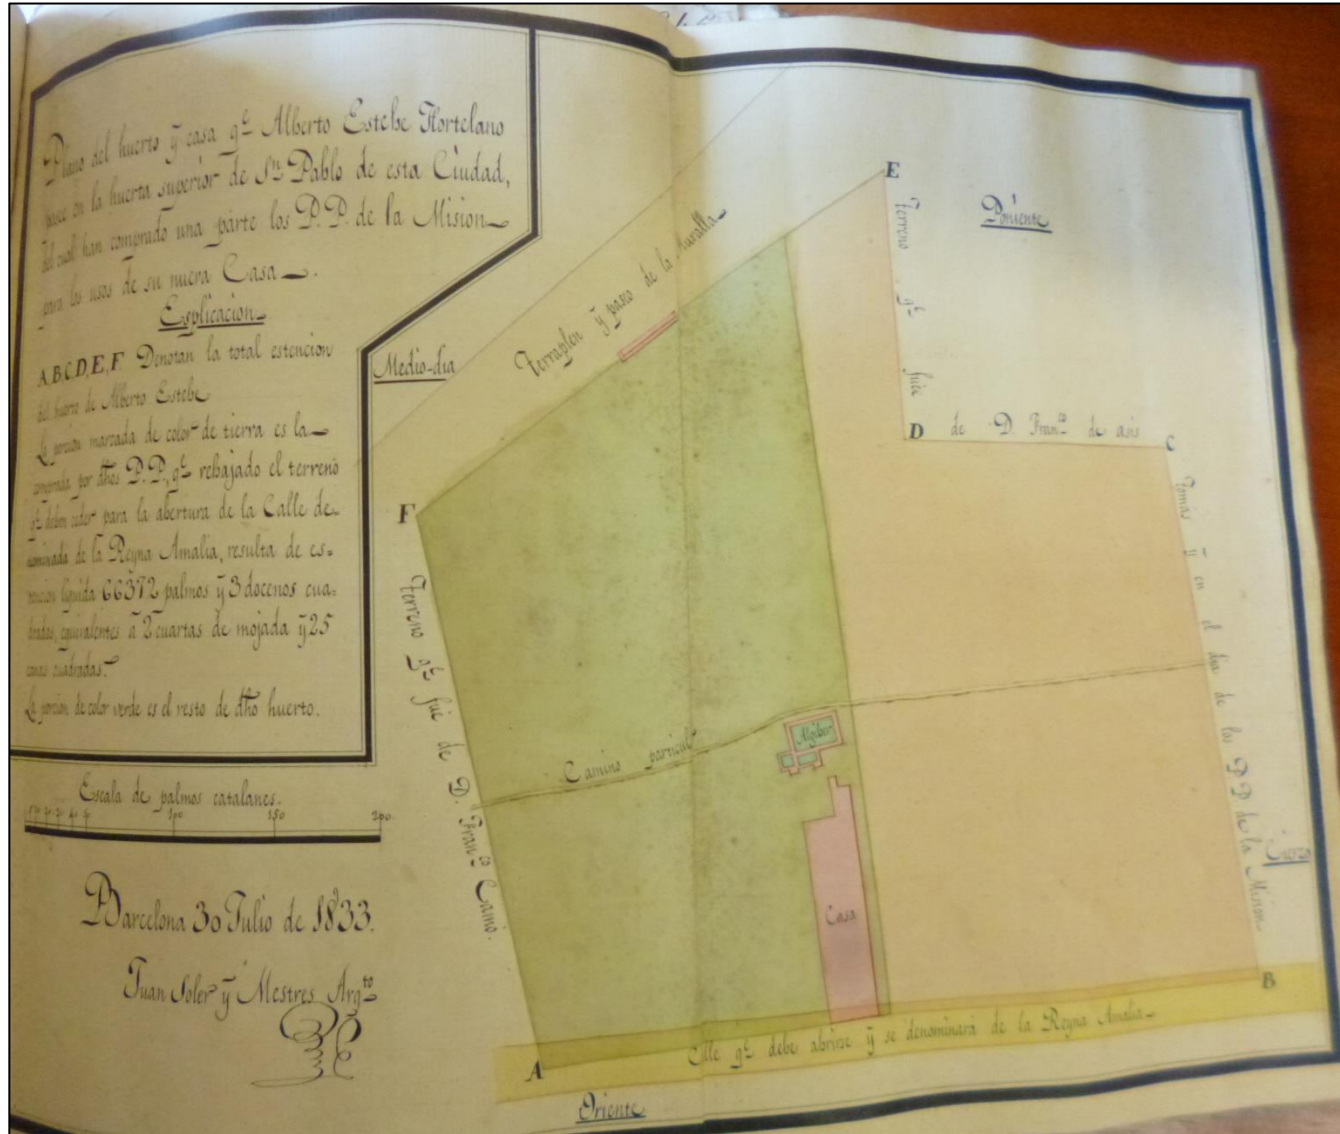 Plano del huerto ÿ casa q.e Alberto Estebe Hortelano
posee en la huerta superior de S.n Pablo de esta Ciudad,
del cual han comprado una parte los P.P. de la Mision
para los usos de su nueva Casa.
Esplicacion
A.B.C.D,E,F Denotan la total estencion
del huerto de Alberto Estebe
La porcion marcada de color de tierra es la
comprada por dhos P.P. q.e rebajado el terreno
q.e deben ceder para la abertura de la Calle de=
nominada de la Reyna Amalia, resulta de es=
tencion liquida 66372 palmos ÿ 3 docenos cua=
drados, equivalentes a 2 cuartas de mojada ÿ 25
canas cuadradas.
La porcion de color verde es el resto de dho huerto.
Escala de palmos catalanes.
100 150 200
Barcelona 30 Julio de 1833.
Juan Soler ÿ Mestres Arq.to
Medio-dia
Terraplen ÿ paseo de la Muralla
E
Poniente
Terreno q.e fué
D
de D. Fran.co de asis
C
Tomás ÿ en el dia de los P.P. de la Mision
F
Terreno q.e fué de D. Fran.co Camó.
Camino particular
Algiber
Casa
Cierzo
B
Calle q.e debe abrirse ÿ se denominará de la Reyna Amalia
A
Oriente